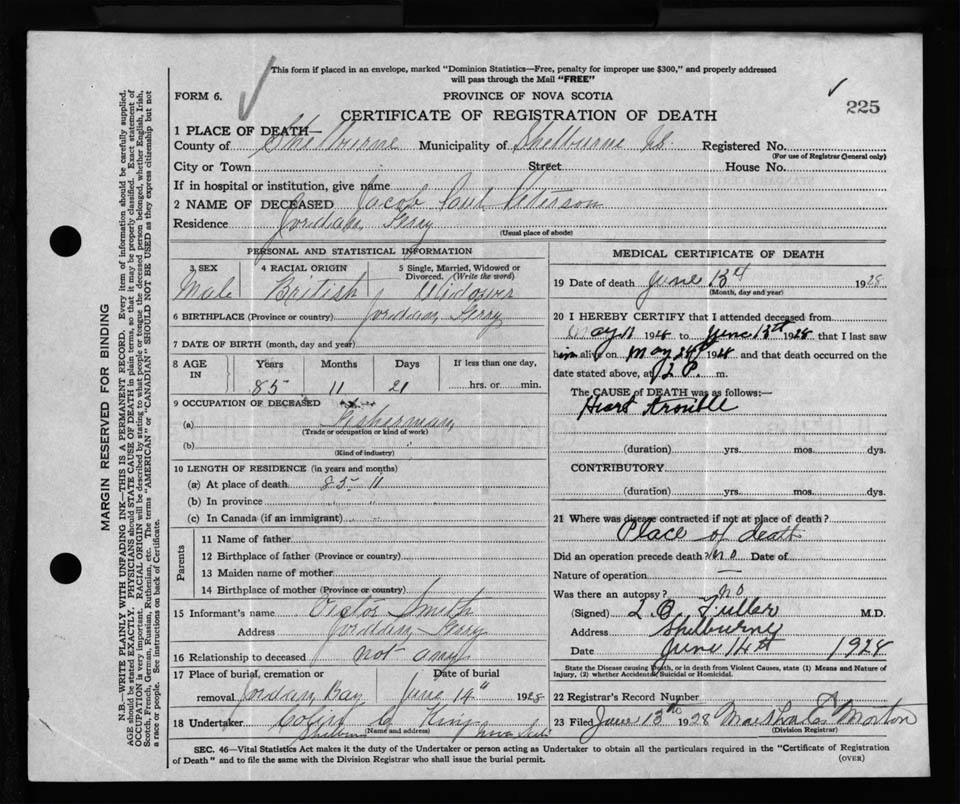 This form if placed in an envelope, marked "Dominion Statistics—Free, penalty for improper use $300," and properly addressed
will pass through the Mail "FREE"
FORM 6.
PROVINCE OF NOVA SCOTIA
225
CERTIFICATE OF REGISTRATION OF DEATH
1 PLACE OF DEATH—
County of Shelburne Municipality of Shelburne Registered No.
(For use of Registrar General only)
City or Town Street House No.
If in hospital or institution, give name
2 NAME OF DECEASED Jacob Paul Peterson
Residence Jordan Ferry
(Usual place of abode)
PERSONAL AND STATISTICAL INFORMATION
3 SEX 4 RACIAL ORIGIN 5 Single, Married, Widowed or
Divorced. (Write the word)
Male British Widower
6 BIRTHPLACE (Province or country) Jordan Ferry
7 DATE OF BIRTH (month, day and year)
8 AGE IN Years Months Days If less than one day,
85 11 21 hrs. or min.
9 OCCUPATION OF DECEASED
(a) Fisherman
(Trade or occupation or kind of work)
(b)
(Kind of industry)
10 LENGTH OF RESIDENCE (in years and months)
(a) At place of death 85 11
(b) In province
(c) In Canada (if an immigrant)
Parents
11 Name of father
12 Birthplace of father (Province or country)
13 Maiden name of mother
14 Birthplace of mother (Province or country)
15 Informant's name Victor Smith
Address Jordan Ferry
16 Relationship to deceased not any
17 Place of burial, cremation or Date of burial
removal Jordan Bay June 14th 1928
18 Undertaker King
Shelburne (Name and address) Nova Scotia
MEDICAL CERTIFICATE OF DEATH
19 Date of death June 13th 1928
(Month, day and year)
20 I HEREBY CERTIFY that I attended deceased from
May 11 1928 to June 13th 1928 that I last saw
him alive on May 1928 and that death occurred on the
date stated above, at 12 P. m.
The CAUSE of DEATH was as follows:—
Heart trouble
(duration) yrs. mos. dys.
CONTRIBUTORY
(duration) yrs. mos. dys.
21 Where was disease contracted if not at place of death?
Place of death
Did an operation precede death? no Date of
Nature of operation —
Was there an autopsy? no
(Signed) L. O. Fuller M.D.
Address Shelburne
Date June 14th 1928
State the Disease causing Death, or in death from Violent Causes, state (1) Means and Nature of
Injury, (2) whether Accidental, Suicidal or Homicidal.
22 Registrar's Record Number
23 Filed June 13th 1928 Morton
(Division Registrar)
SEC. 46—Vital Statistics Act makes it the duty of the Undertaker or person acting as Undertaker to obtain all the particulars required in the "Certificate of Registration
of Death" and to file the same with the Division Registrar who shall issue the burial permit.
(OVER)
MARGIN RESERVED FOR BINDING
N.B.—WRITE PLAINLY WITH UNFADING INK—THIS IS A PERMANENT RECORD. Every item of information should be carefully supplied.
AGE should be stated EXACTLY. PHYSICIANS should STATE CAUSE OF DEATH in plain terms, so that it may be properly classified. Exact statement of
OCCUPATION is very important. RACIAL ORIGIN will be described by stating to what people or tongue the deceased person belonged, whether English, Irish,
Scotch, French, German, Russian, Ruthenian, etc. The terms "AMERICAN" or "CANADIAN" SHOULD NOT BE USED as they express citizenship but not
a race or people. See instructions on back of Certificate.